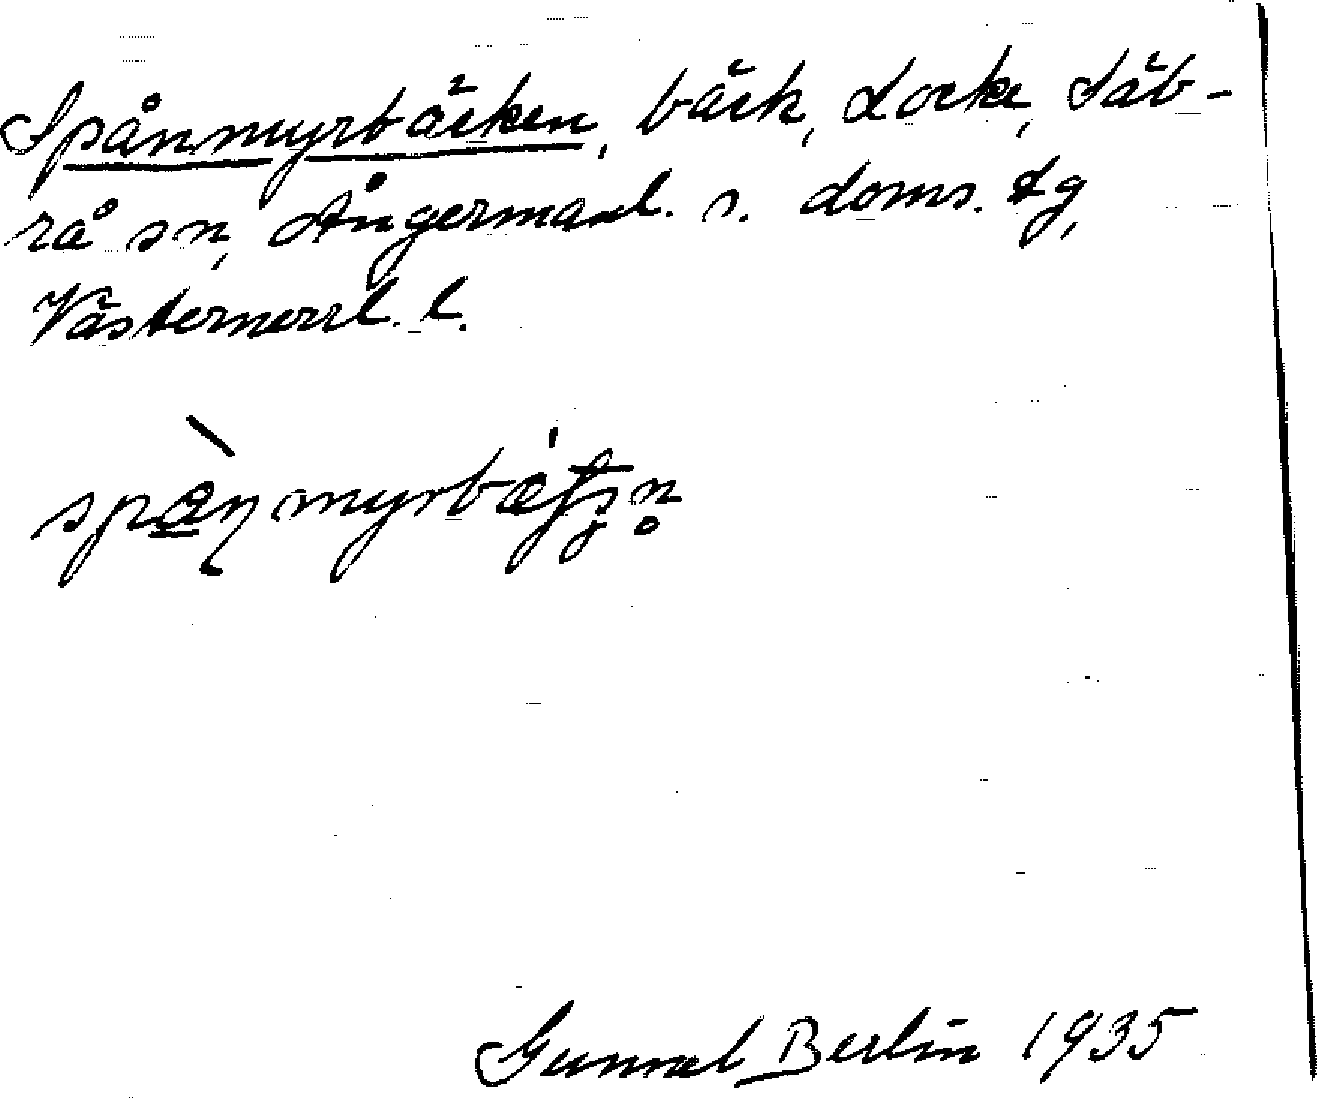 Spånmyrbäcken, bäck, Locke, Säb-
rå sn, Ångermanl. s. doms. tg,
Västernorrl. l.
Gunnel Berlin 1935